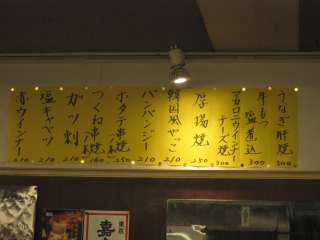 うなぎ肝焼 300
牛もつ塩煮込 300
マカロニウインナーチーズ焼 300
厚揚焼 250
韓国風やっこ 210
バンバンジー 210
ホタテ串焼 一本 250
つくね串焼 一本 160
ガツ刺 210
塩キャベツ 210
赤ウインナー 210
嘉
東京